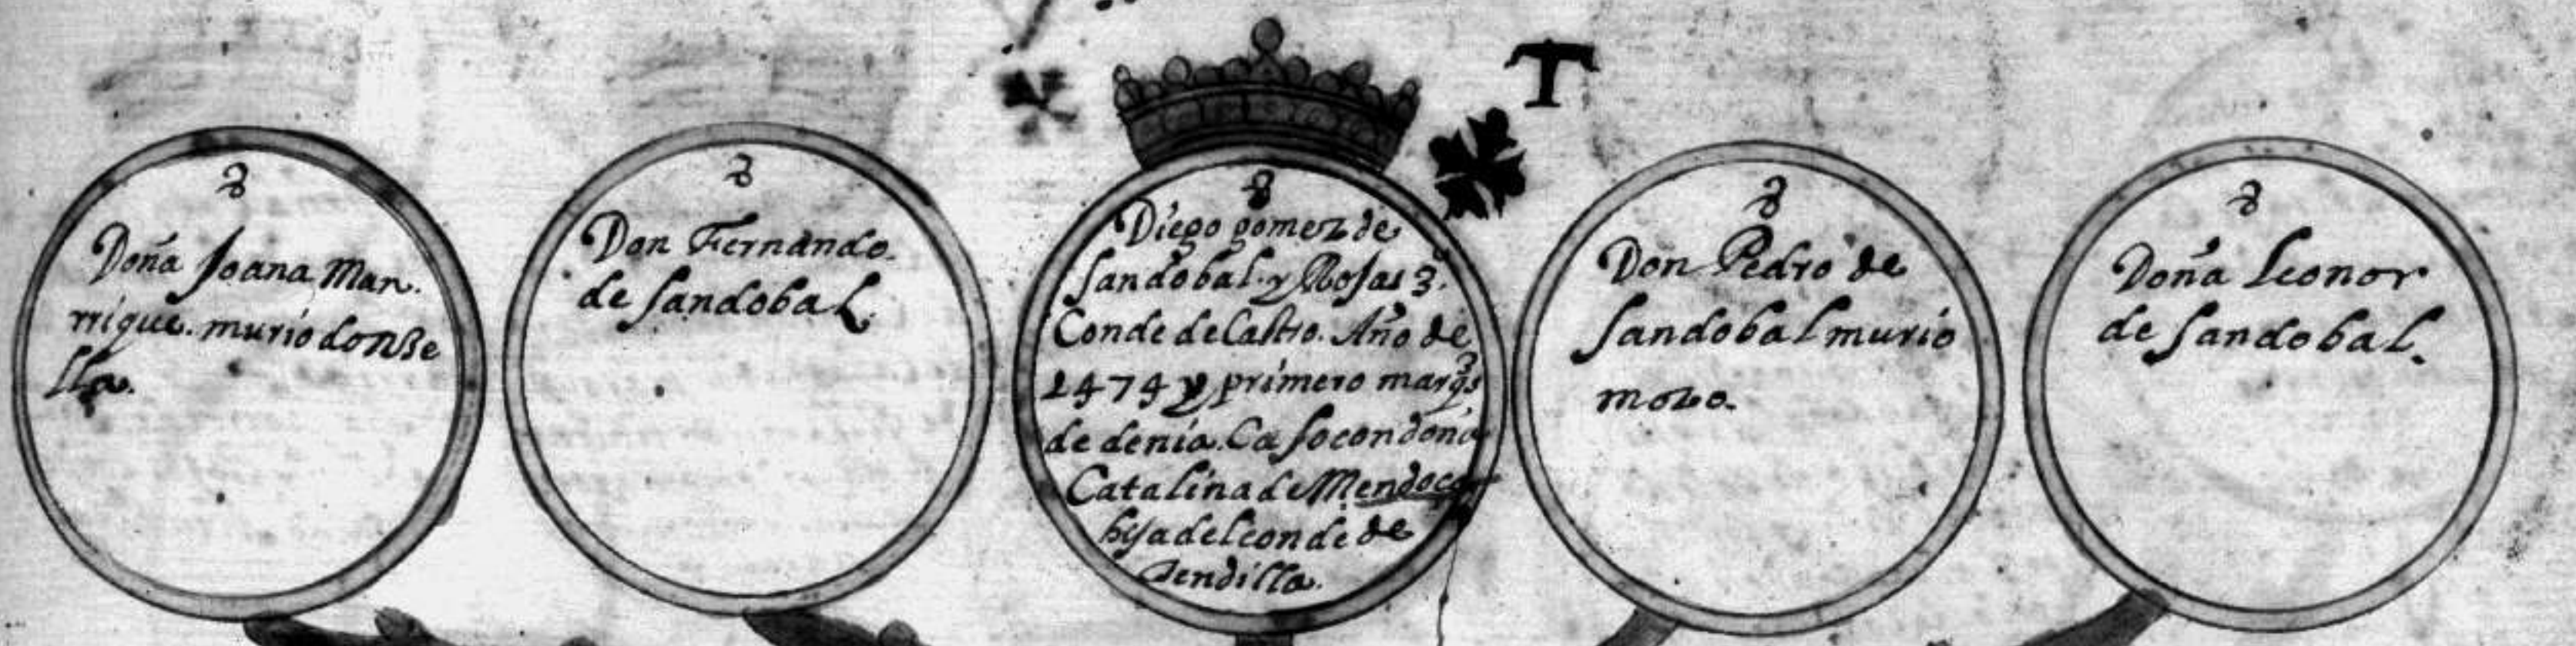 T
8
Doña Joana Man.
rrique. murio donze
lla.
8
Don Fernando.
de Sandobal.
8
Diego gomez de
Sandobal. y Rojas 3.º
Conde de Castro. Año de
1474 y primero marq̃s
de denia. Ca so con doña
Catalina de Mendoca
hija del conde de
Tendilla.
8
Don Pedro de
Sandobal murio
mozo.
8
Doña Leonor
de Sandobal.